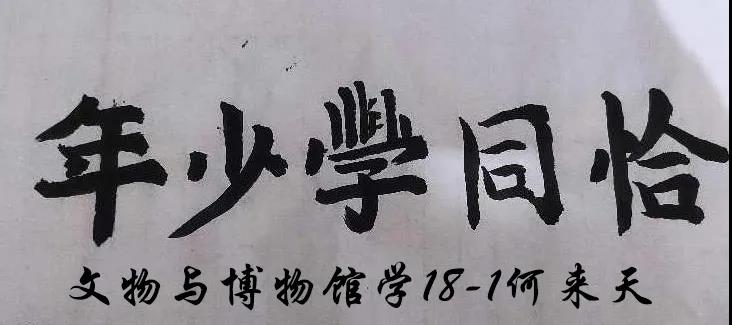 恰同學少年
文物与博物馆学18-1何来天